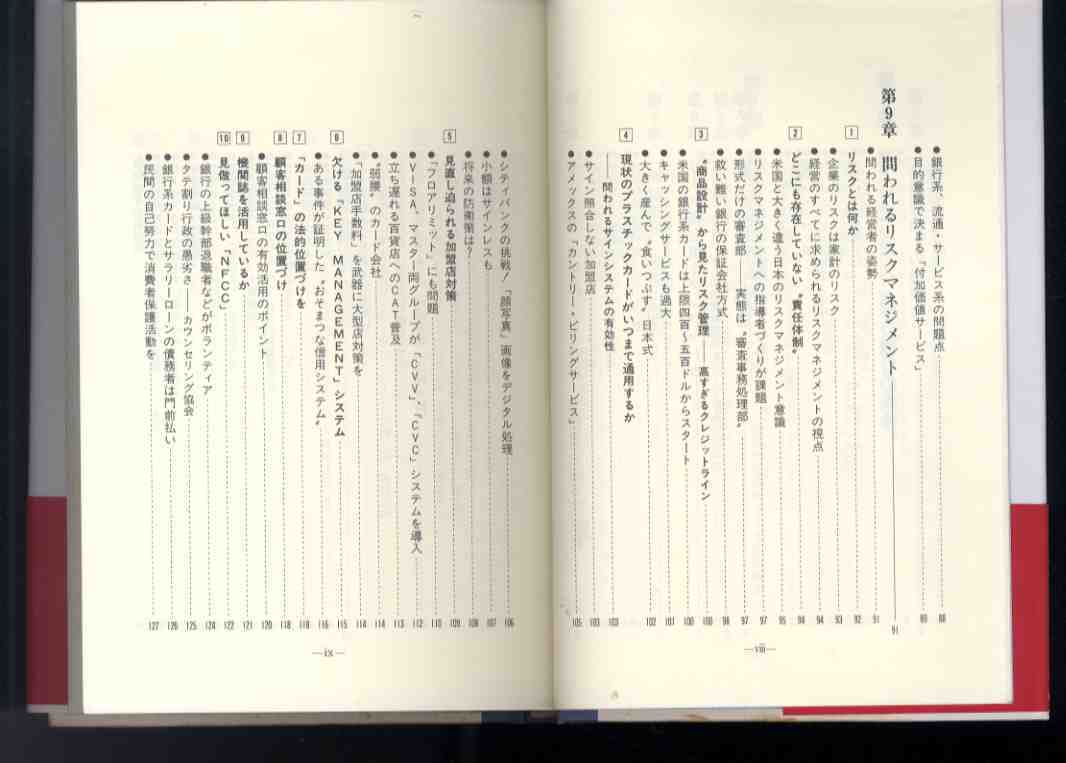 ●銀行系、流通・サービス系の問題点 88
●目的意識で決まる「付加価値サービス」 89
第9章 問われるリスクマネジメント 91
●問われる経営者の姿勢 91
1 リスクとは何か 92
●企業のリスクは家計のリスク 93
●経営のすべてに求められるリスクマネジメントの視点 94
2 どこにも存在していない“責任体制” 94
●米国と大きく違う日本のリスクマネジメント意識 95
●リスクマネジメントへの指導者づくりが課題 97
●形式だけの審査部――実態は“審査事務処理部” 97
●救い難い銀行の保証会社方式 98
3 “商品設計”から見たリスク管理――高すぎるクレジットライン 100
●米国の銀行系カードは上限四百〜五百ドルからスタート 100
●キャッシングサービスも過大 101
●大きく産んで“食いつぶす”日本式 102
4 現状のプラスチックカードがいつまで通用するか
――問われるサインシステムの有効性 103
●サイン照合しない加盟店 103
●アメックスの「カントリー・ビリングサービス」 105
―viii―
●シティバンクの挑戦/「顔写真」画像をデジタル処理 106
●小額はサインレスも 107
●将来の防衛策は? 108
5 見直し迫られる加盟店対策 109
●「フロアリミット」にも問題 110
●VISA、マスター両グループが「CVV」、「CVC」システムを導入 112
●立ち遅れる百貨店へのCAT普及 113
●“弱腰”のカード会社 114
●「加盟店手数料」を武器に大型店対策を 114
6 欠ける「KEY MANAGEMENT」システム 115
●ある事件が証明した“おそまつな信用システム” 116
7 「カード」の法的位置づけを 116
8 顧客相談窓口の位置づけ 118
●顧客相談窓口の有効活用のポイント 120
9 機関誌を活用しているか 121
10 見倣ってほしい「NFCC」 122
●銀行の上級幹部退職者などがボランティア 124
●タテ割り行政の愚劣さ――カウンセリング協会 125
●銀行系カードとサラリーローンの債務者は門前払い 126
●民間の自己努力で消費者保護活動を 127
―ix―